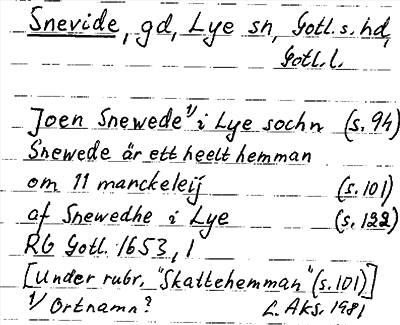 Snevide, gd, Lye sn, Gotl. s. hd,
Gotl. l.
Joen Snewede ¹⁾ i Lye sochn (s. 94)
Snewede är ett heelt hemman
om 11 marckeleij (s. 101)
af Snewedhe i Lye (s. 122)
RG Gotl. 1653, 1
[Under rubr. "Skattehemman" (s. 101)]
¹⁾ Ortnamn? L. Aks. 1981